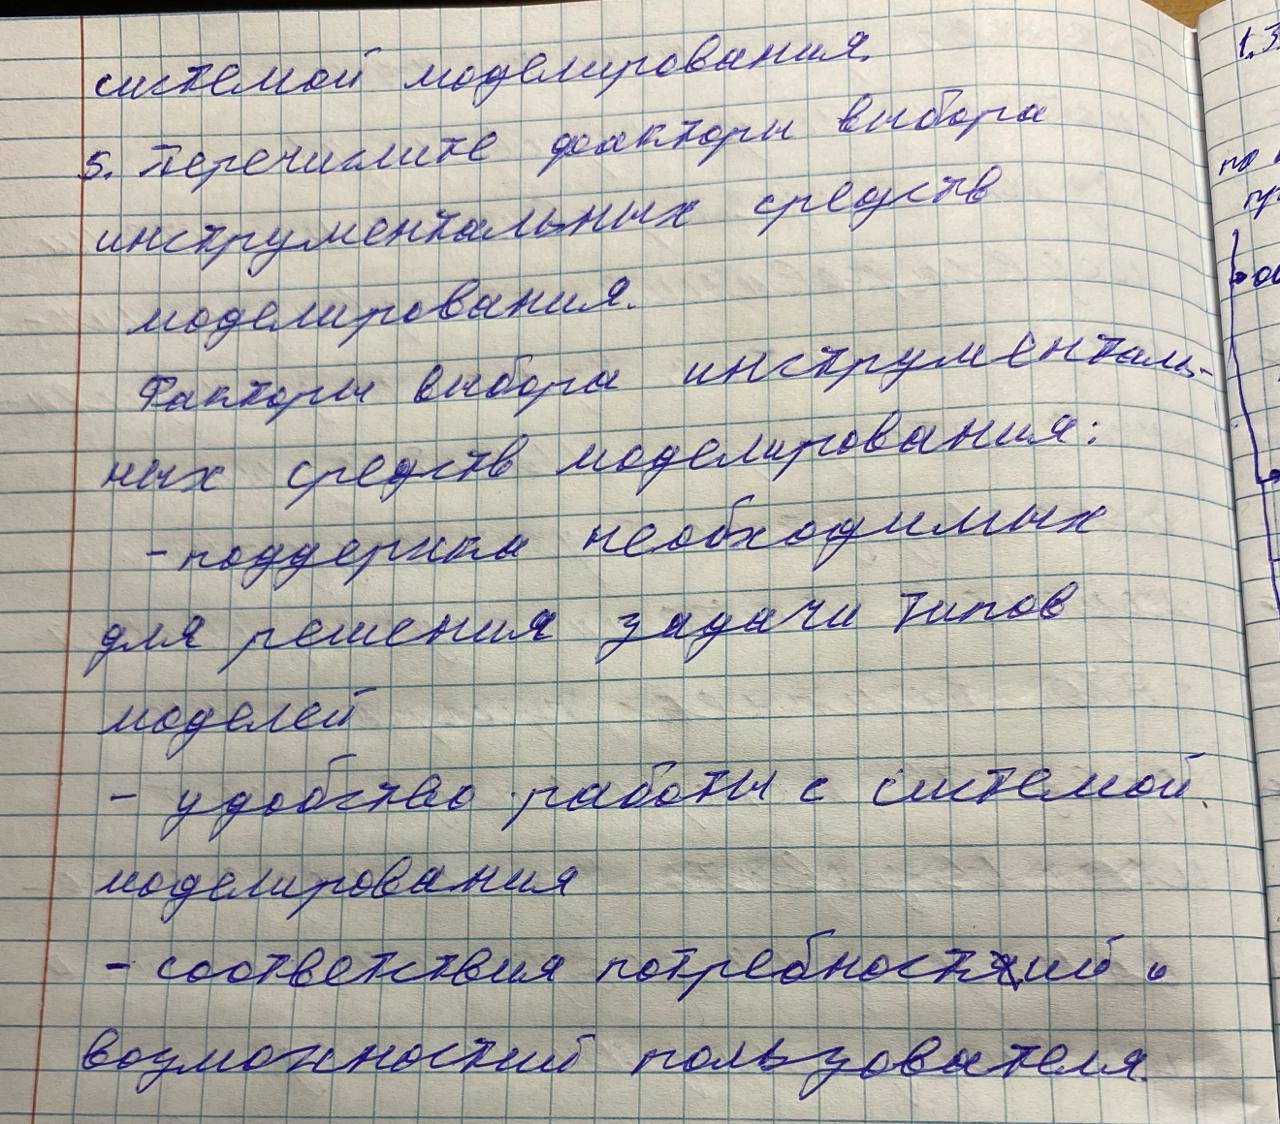 системой моделирования.
5. Перечислите факторы выбора
инструментальных средств
моделирования.
Факторы выбора инструменталь-
ных средств моделирования:
- поддержка необходимых
для решения задачи типов
моделей
- удобство работы с системой
моделирования
- соответствия потребностий и
возможностий пользователя.
1.3
по